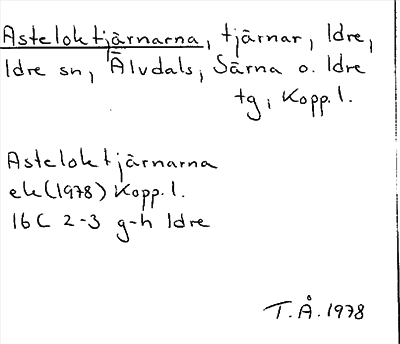 Asteloktjärnarna, tjärnar, Idre,
Idre sn, Älvdals, Särna o. Idre
tg, Kopp.l.
Asteloktjärnarna
ek(1978) Kopp.l.
16C 2-3 g-h Idre
T.Å.1978